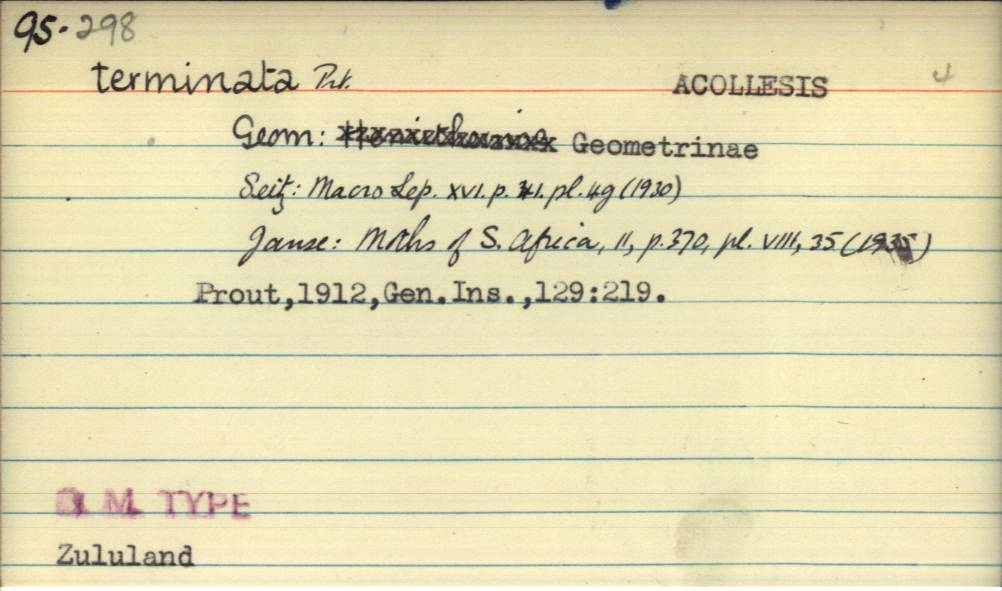 95.298
terminata Prt. ACOLLESIS
Geom: Hemitheinae Geometrinae
Seitz: Macro Lep. XVI. p. 41. pl. 4g (1930)
Janse: Moths of S. Africa, II, p. 370, pl. VIII, 35 (1935)
Prout,1912,Gen.Ins.,129:219.
B. M. TYPE
Zululand